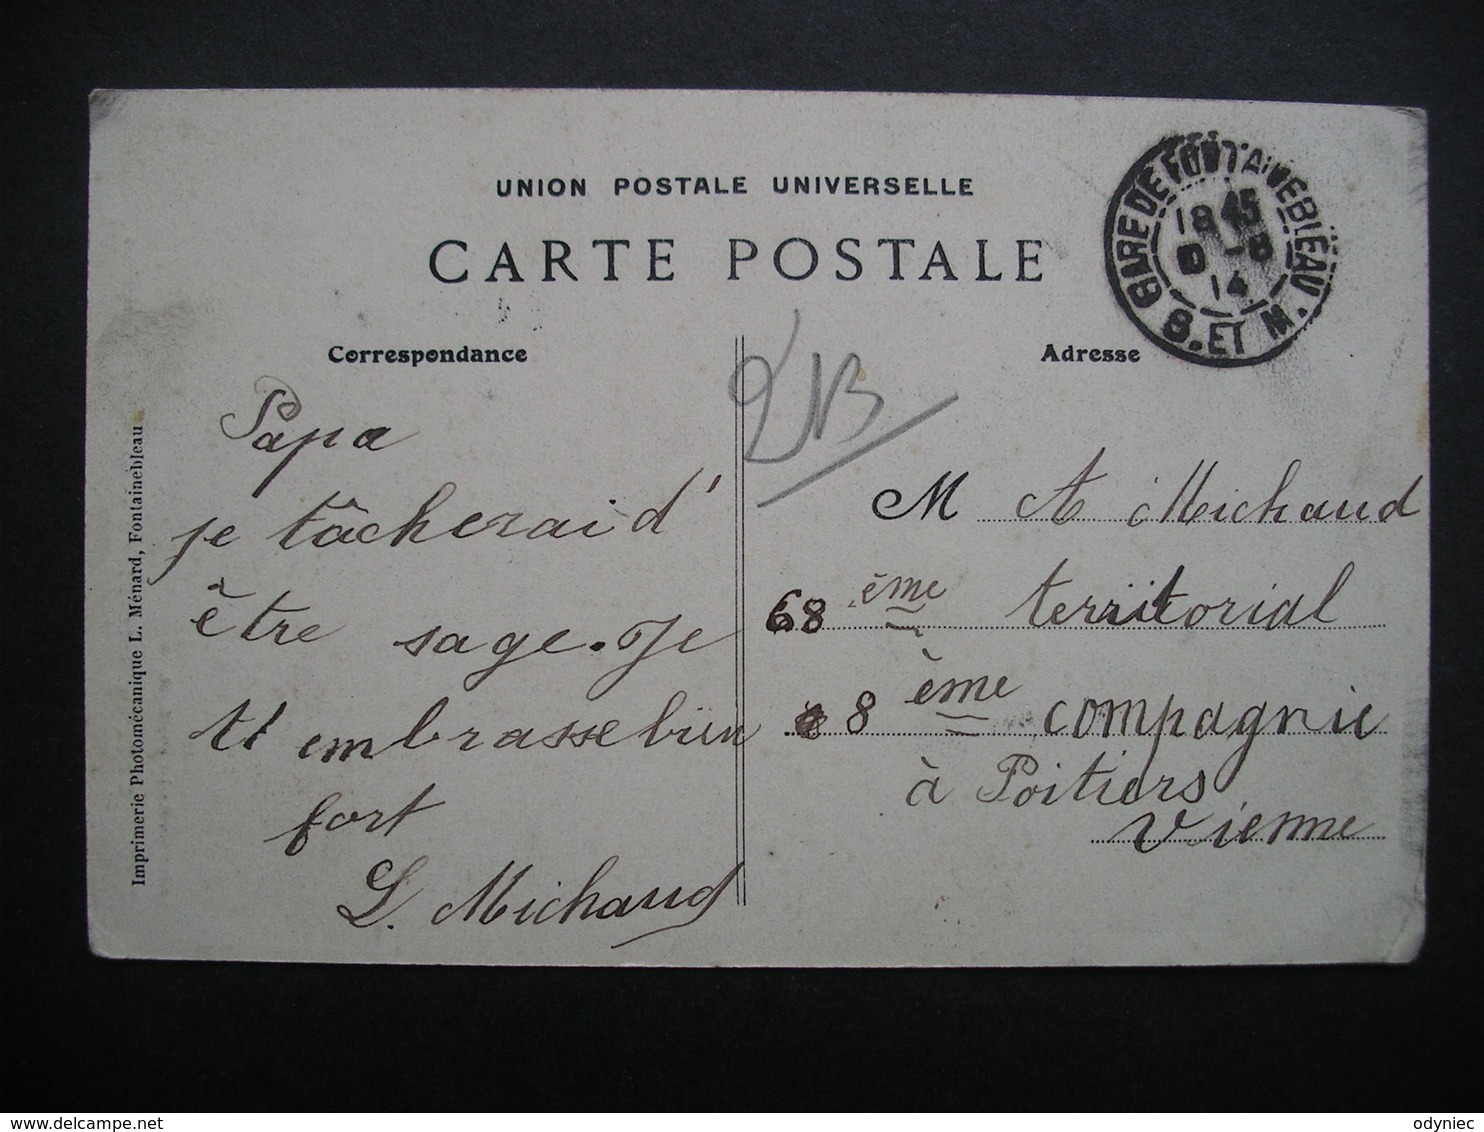 UNION POSTALE UNIVERSELLE
CARTE POSTALE
GARE DE FONTAINEBLEAU
18 45
-8
14
S. ET M.
Correspondance
Adresse
Papa
je tâcherai d'
être sage. Je
t'embrasse bien
fort
L. Michaud
M A Michaud
68 ème territorial
8 ème compagnie
à Poitiers
Vienne
Imprimerie Photomécanique L. Ménard, Fontainebleau
odyniec